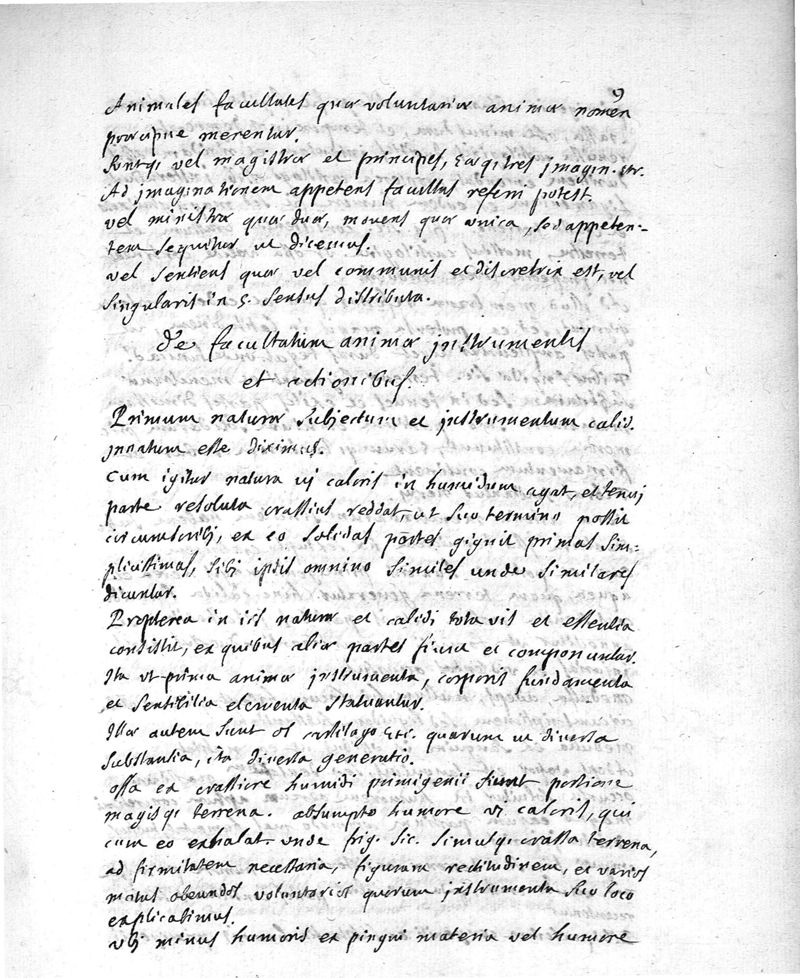 9
Animales facultates quæ voluntariæ animæ nomen
præcipue merentur.
suntqs vel magistræ et principes, eæqs tres jmagin. etr.
Ad jmaginationem appetens facultas referri potest.
vel ministræ quæ duæ, movens quæ unica, sed appeten-
tem sequitur ut dicemus.
vel sentiens quæ vel communis et discretrix est, vel
singularis in 5. sensus distributa.
De facultatum animæ jnstrumentis
et actionibus.
Primum naturæ subjectum et jnstrumentum calid.
jnnatum esse diximus.
Cum igitur natura vj caloris in humidum agat, et tenuj
parte resoluta crassius reddat, ut suo termino possit
circumscribj, ex eo solidas partes gignit primas sim-
plicissimas, sibj ipsis omnino similes unde similares
dicuntur.
Propterea in iis naturæ et calidi tota vis et essentia
consistit, ex quibus aliæ partes fiunt et componuntur.
Ita ut prima animæ jnstrumenta, corporis fundamenta
et sensibilia elementa statuantur.
Illæ autem sunt os cartilago etc. quarum ut diversa
substantia, ita diversa generatio.
ossa ex crassiore humidi primigenii fiunt portione
magisqs terrena. absumpto humore vi caloris, qui
cum eo exhalat. unde frig. sic. simulqs crassa terrena,
ad firmitatem necessaria, figuram rectitudinem, et varios
motus obeundos voluntarios quorum jnstrumenta suo loco
explicabimus.
vbj minus humoris ex pingui materia vel humore